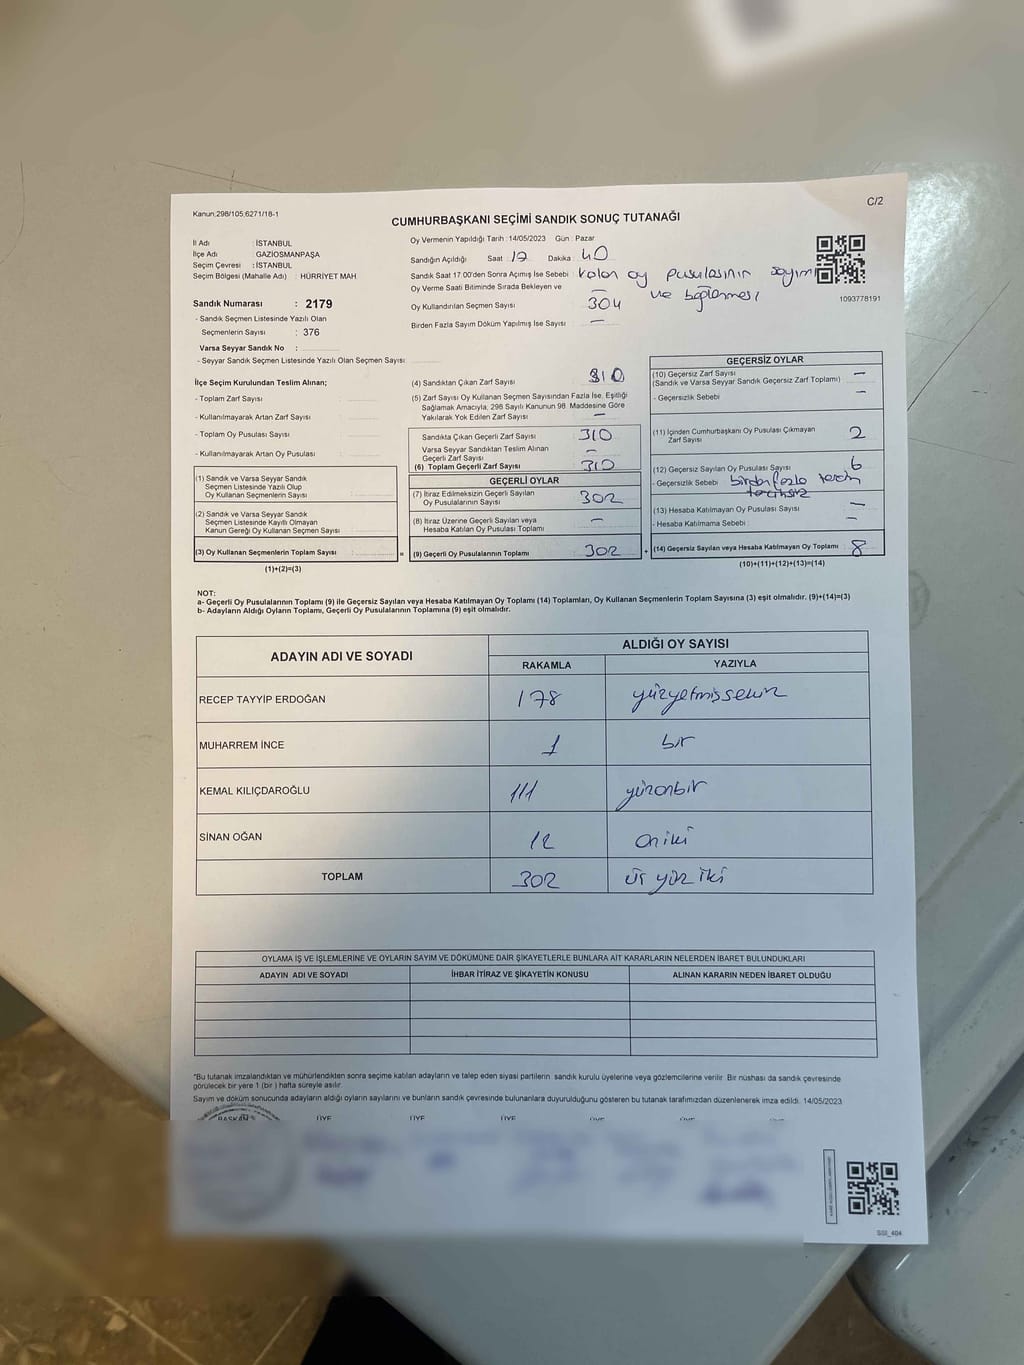 C/2
Kanun:298/105;6271/18-1
CUMHURBAŞKANI SEÇİMİ SANDIK SONUÇ TUTANAĞI
İl Adı : İSTANBUL
İlçe Adı : GAZİOSMANPAŞA
Seçim Çevresi : İSTANBUL
Seçim Bölgesi (Mahalle Adı) : HÜRRİYET MAH.
Sandık Numarası : 2179
- Sandık Seçmen Listesinde Yazılı Olan
Seçmenlerin Sayısı : 376
Varsa Seyyar Sandık No :
- Seyyar Sandık Seçmen Listesinde Yazılı Olan Seçmen Sayısı
Oy Vermenin Yapıldığı Tarih : 14/05/2023 Gün : Pazar
Sandığın Açıldığı Saat : 17 Dakika : 40
Sandık Saat 17:00'den Sonra Açımış İse Sebebi : kalan oy pusulasının sayımı
ve bağlanması
Oy Verme Saati Bitiminde Sırada Bekleyen ve —
Oy Kullandırılan Seçmen Sayısı 304
Birden Fazla Sayım Döküm Yapılmış İse Sayısı —
1093778191
İlçe Seçim Kurulundan Teslim Alınan;
- Toplam Zarf Sayısı :
- Kullanılmayarak Artan Zarf Sayısı :
- Toplam Oy Pusulası Sayısı :
- Kullanılmayarak Artan Oy Pusulası :
(1) Sandık ve Varsa Seyyar Sandık
Seçmen Listesinde Yazılı Olup
Oy Kullanan Seçmenlerin Sayısı
(2) Sandık ve Varsa Seyyar Sandık
Seçmen Listesinde Kayıtlı Olmayan
Kanun Gereği Oy Kullanan Seçmen Sayısı
(3) Oy Kullanan Seçmenlerin Toplam Sayısı : =
(1)+(2)=(3)
(4) Sandıktan Çıkan Zarf Sayısı 310
(5) Zarf Sayısı Oy Kullanan Seçmen Sayısından Fazla İse, Eşitliği
Sağlamak Amacıyla, 298 Sayılı Kanunun 98. Maddesine Göre
Yakılarak Yok Edilen Zarf Sayısı —
Sandıkta Çıkan Geçerli Zarf Sayısı 310
Varsa Seyyar Sandıktan Teslim Alınan
Geçerli Zarf Sayısı —
(6) Toplam Geçerli Zarf Sayısı 310
GEÇERLİ OYLAR
(7) İtiraz Edilmeksizin Geçerli Sayılan
Oy Pusulalarının Sayısı 302
(8) İtiraz Üzerine Geçerli Sayılan veya
Hesaba Katılan Oy Pusulası Toplamı —
(9) Geçerli Oy Pusulalarının Toplamı 302 +
GEÇERSİZ OYLAR
(10) Geçersiz Zarf Sayısı —
(Sandık ve Varsa Seyyar Sandık Geçersiz Zarf Toplamı)
- Geçersizlik Sebebi —
(11) İçinden Cumhurbaşkanı Oy Pusulası Çıkmayan
Zarf Sayısı 2
(12) Geçersiz Sayılan Oy Pusulası Sayısı 6
- Geçersizlik Sebebi birden fazla tercih
tercihsiz
(13) Hesaba Katılmayan Oy Pusulası Sayısı —
- Hesaba Katılmama Sebebi —
(14) Geçersiz Sayılan veya Hesaba Katılmayan Oy Toplamı 8
(10)+(11)+(12)+(13)=(14)
NOT:
a- Geçerli Oy Pusulalarının Toplamı (9) ile Geçersiz Sayılan veya Hesaba Katılmayan Oy Toplamı (14) Toplamları, Oy Kullanan Seçmenlerin Toplam Sayısına (3) eşit olmalıdır. (9)+(14)=(3)
b- Adayların Aldığı Oyların Toplamı, Geçerli Oy Pusulalarının Toplamına (9) eşit olmalıdır.
ADAYIN ADI VE SOYADI ALDIĞI OY SAYISI
RAKAMLA YAZIYLA
RECEP TAYYİP ERDOĞAN 178 yüzyetmişsekiz
MUHARREM İNCE 1 bir
KEMAL KILIÇDAROĞLU 111 yüzonbir
SİNAN OĞAN 12 oniki
TOPLAM 302 üç yüz iki
OYLAMA İŞ VE İŞLEMLERİNE VE OYLARIN SAYIM VE DÖKÜMÜNE DAİR ŞİKAYETLERLE BUNLARA AİT KARARLARIN NELERDEN İBARET BULUNDUKLARI
ADAYIN ADI VE SOYADI İHBAR İTİRAZ VE ŞİKAYETİN KONUSU ALINAN KARARIN NEDEN İBARET OLDUĞU
*Bu tutanak imzalandıktan ve mühürlendikten sonra seçime katılan adayların ve talep eden siyasi partilerin sandık kurulu üyelerine veya gözlemcilerine verilir. Bir nüshası da sandık çevresinde
görülecek bir yere 1 (bir) hafta süreyle asılır.
Sayım ve döküm sonucunda adayların aldığı oyların sayılarını ve bunların sandık çevresinde bulunanlara duyurulduğunu gösteren bu tutanak tarafımızdan düzenlenerek imza edildi. 14/05/2023
BAŞKAN ÜYE ÜYE ÜYE ÜYE ÜYE
SSI_404